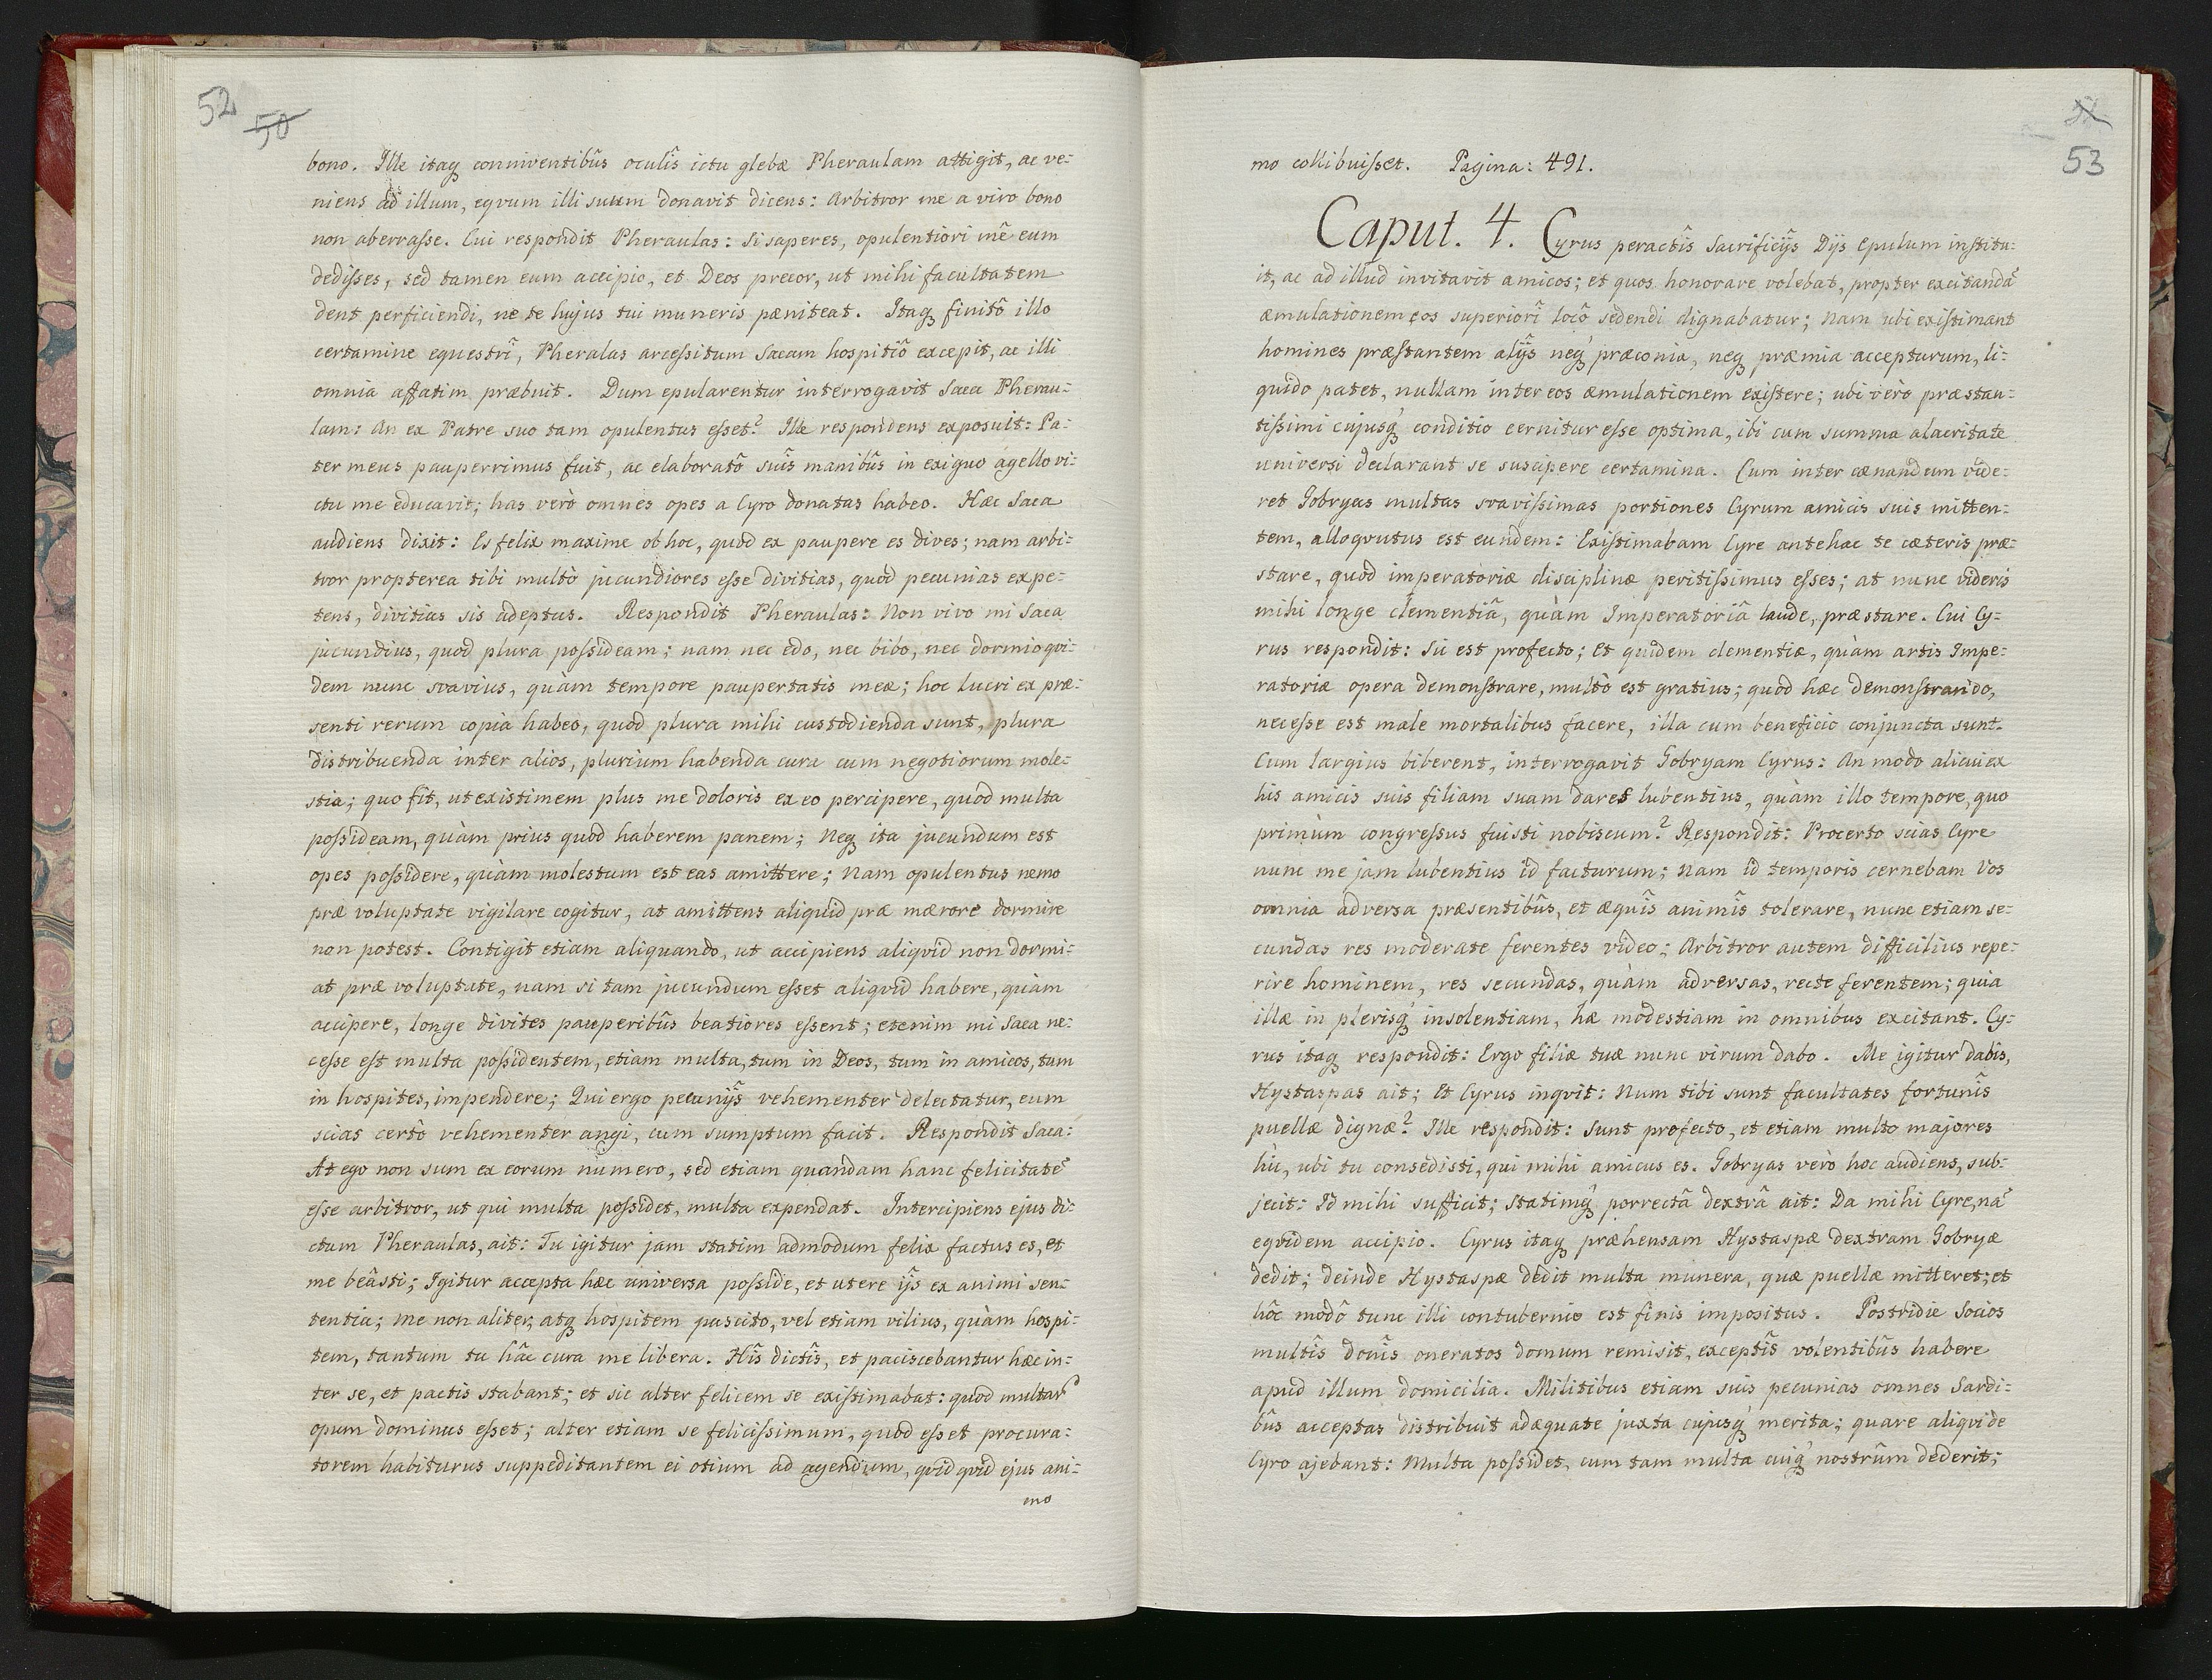 52 50
bono. Ille itaq₃ conniventibûs oculîs ictu glebæ Pheraulam attigit, ac ve:
niens ad illum, eqvum illi suum donavit dicens: Arbitror me a viro bono
non aberraſse. Cui respondit Pheraulas: Si saperes, opulentiori mê eum
dediſses, sed tamen eum accipio, et Deos precor, ut mihi facultatem
dent perficiendi, ne te hujus tui muneris pæniteat. Itaq₃ finitô illo
certamine equestrî, Pheralas arceſsitum Sacam hospitiô excepit, ac illi
omnia affatim præbuit. Dum epularentur interrogavit Saca Pherau:
lam: An ex Patre suo tam opulentus eſset? Ille respondens exposuit: Pa:
ter meus pauperrimus fuit, ac elaboratô suîs manibûs in exiguo agello vi:
ctu me educavit; has verò omnes opes a Cyro donatas habeo. Hæc Saca
audiens dixit: Es felix maxime ob hoc, quòd ex paupere es dives; nam arbi:
tror propterea tibi multò jucundiores eſse divitias, quòd pecunias expe:
tens, divitias sis adeptus. Respondit Pheraulas: Non vivo mi Saca
jucundius, quòd plura poſsideam; nam nec edo, nec bibo, nec dormio qvi:
dem nunc svavius, quàm tempore paupertatis meæ; hoc lucri ex præ:
senti rerum copià habeo, quòd plura mihi custodienda sunt, plura
distribuenda inter alios, plurium habenda cura cum negotiorum mole:
stia; quo fit, ut existimem plus me doloris ex eo percipere, quòd multa
poſsideam, quàm prius quòd haberem panem; Neq₃ ita jucundum est
opes poſsidere, quàm molestum est eas amittere; Nam opulentus nemo
præ voluptate vigilare cogitur, at amittens aliquid præ mærore dormire
non potest. Contigit etiam aliquando, ut accipiens aliqvid non dormi:
at præ voluptate, nam si tam jucundum eſset aliqvid habere, quàm
accipere, longe divites pauperibûs beatiores eſsent; etenim mi Saca ne:
ceſse eſt multa poſsidentem, etiam multa, tum in Deos, tum in amicos, tum
in hospites, impendere; Qui ergo pecunijs vehementer delectatur, eum
scias certò vehementer angi, cum sumptum facit. Respondit Saca:
At ego non sum ex eorum numero, sed etiam quandam hanc felicitatẽ
eſse arbitror, ut qui multa poſsidet, multa expendat. Intercipiens ejus di:
ctum Pheraulas, ait: Tu igitur jam statim admodum felix factus es, et
me beâsti; Igitur accepta hæc universa poſside, et utere ijs ex animi sen:
tentia; me non aliter, atq₃ hospitem pascito, vel etiam vilius, quàm hospi:
tem, tantum tu hâc cura me libera. Hîs dictîs, et paciscebantur hæc in:
ter se, et pactis stabant; et sic alter felicem se exiſtimabat: quòd multarũ
opum dominus eſset; alter etiam se feliciſsimum, quòd eſset procura:
torem habiturus suppeditantem ei otium ad agendum, qvid qvid ejus ani:
mo
53
mo collibuiſset. Pagina: 491.
Caput. 4. Cyrus peractîs Sacrificijs Dijs Epulum inſtitu:
it, ac ad illud invitavit amicos; et quos honorare volebat, propter excitandã
æmulationem eos superiorî locô sedendi dignabatur; Nam ubi exiſtimant
homines præſtantem alijs neq₃ præconia, neq₃ præmia accepturum, li:
quido patet, nullam inter eos æmulationem exiſtere; ubi verò præstan:
tiſsimi cujusq₃ conditio cernitur eſse optima, ibi cum summa alacritate
universi declarant se suscipere certamina. Cum inter cænandum vide:
ret Gobryas multas svaviſsimas portiones Cyrum amicis suis mitten:
tem, alloqvutus est eundem: Exiſtimabam Cyre antehac te cæteris præ:
stare, quòd imperatoriæ disciplinæ peritiſsimus eſses; at nunc videris
mihi longe clementiâ, quàm Imperatoriâ laude, præstare. Cui Cy:
rus respondit: Sic est profecto; Et quidem clementiæ, quàm artis Impe:
ratoriæ opera demonſtrare, multò est gratius; quòd hæc demonſtrando,
neceſse est male mortalibus facere, illa cum beneficio conjuncta sunt.
Cum largius biberent, interrogavit Gobryam Cyrus: An modo alicui ex
his amicis suis filiam suam dares lubentius, quàm illo tempore, quo
primùm congreſsus fuisti nobiscum? Respondit: Procerto scias Cyre
nunc me jam lubentius id facturum; Nam id temporis cernebam Vos
omnia adversa præsentibûs, et æquîs animîs tolerare, nunc etiam se:
cundas res moderate ferentes video; Arbitror autem difficilius repe:
rire hominem, res secundas, quàm adversas, recte ferentem; quia
illæ in plerisq₃ insolentiam, hæ modestiam in omnibus excitant. Cy:
rus itaq₃ respondit: Ergo filiæ tuæ nunc virum dabo. Me igitur dabis,
Hystaspas ait; Et Cyrus inqvit: Num tibi sunt facultates fortunîs
puellæ dignæ? Ille respondit: Sunt profecto, et etiam multo majores
hic, ubi tu consedisti, qui mihi amicus es. Gobryas verò hoc audiens, sub:
jecit: Id mihi sufficit; Statimq₃ porrectâ dextrâ ait: Da mihi Cyre, nã
eqvidem accipio. Cyrus itaq₃ præhensam Hystaspæ dextram Gobryæ
dedit; deinde Hystaspæ dedit multa munera, quæ puellæ mitteret; et
hôc modô tunc illi contubernio est finis impositus. Postridie Socios
multîs donîs oneratos domum remisit, exceptîs volentibûs habere
apud illum domicilia. Militibus etiam suis pecunias omnes Sardi:
bûs acceptas distribuit adæquate juxta cujusq₃ merita; quare aliqvi de
Cyro ajebant: Multa poſsidet, cum tam multa cuiq₃ nostrûm dederit;